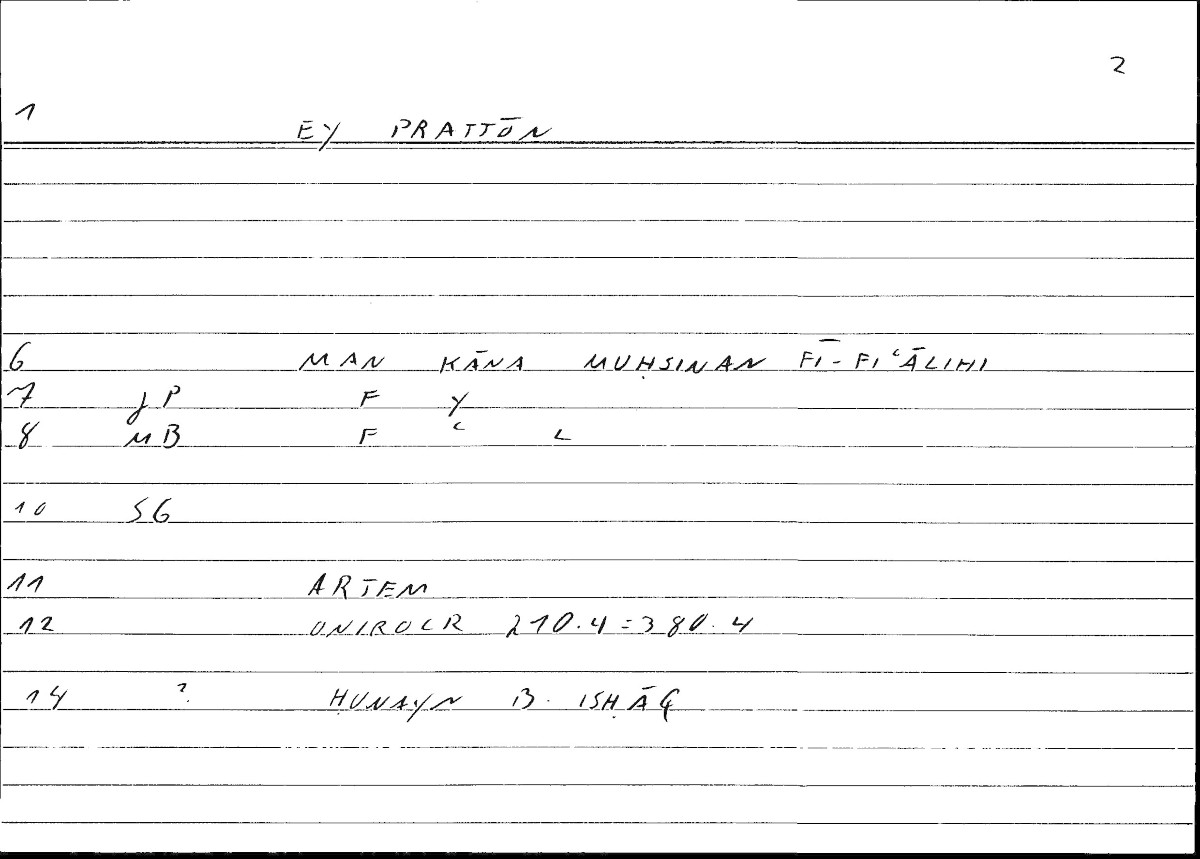 2
1 EY PRATTŌN
6 MAN KĀNA MUḤSINAN FĪ-FIʿĀLIHI
7 JP F Y
8 MB F ʿ L
10 SG
11 ARTEM
12 ONIROCR 210.4=380.4
14 ? ḤUNAYN B. ISḤĀQ